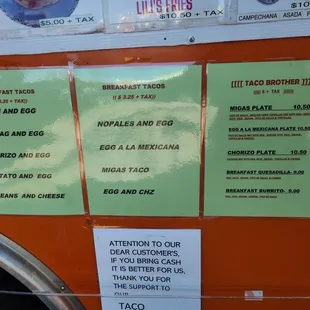 $5.00 + TAX
LILI'S FRIES
$10.50 + TAX
$10
CAMPECHANA ASADA
FAST TACOS
.25 + TAX
AND EGG
AG AND EGG
RIZO AND EGG
TATO AND EGG
EANS AND CHEESE
BREAKFAST TACOS
(( $ 3.25 + TAX))
NOPALES AND EGG
EGG A LA MEXICANA
MIGAS TACO
EGG AND CHZ
[[[[ TACO BROTHER ]]]]
$ + TAX
MIGAS PLATE 10.50
EGG A LA MEXICANA PLATE 10.50
CHORIZO PLATE 10.50
BREAKFAST QUESADILLA: 9.00
BREAKFAST BURRITO: 9.00
ATTENTION TO OUR
DEAR CUSTOMER'S,
IF YOU BRING CASH
IT IS BETTER FOR US,
THANK YOU FOR
THE SUPPORT TO
OUR
TACO